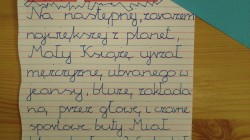 Na następnej, zarazem
największej z planet,
Mały Książę ujrzał
mężczyznę, ubranego w
jeansy, bluzę zakłada-
ną przez głowę i czarne
sportowe buty. Miał